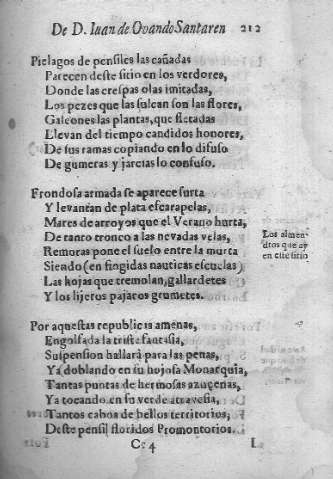 De D. Iuan de Ovando Santaren 212
Pielagos de pensiles las cañadas
Parecen deste sitio en los verdores,
Donde las crespas olas imitadas,
Los pezes que las sulcan son las flores,
Galeones las plantas, que fletadas
Llevan del tiempo candidos honores,
De sus ramas copiando en lo difuso
De gumeras y jarcias lo confuso.
Frondosa armada se aparece surta
Y levantan de plata escarapelas,
Mares de arroyos que el Verano hurta,
De tanto tronco a las nevadas velas,
Remoras pone el suelo entre la murta
Siendo (en fingidas nauticas escuelas)
Las hojas que tremolan, gallardetes
Y los lijeros pajaros grumetes.
Los almen-
dros que ay
en este sitio
Por aquestas republicas amenas,
Engolfada la triste fantasia,
Suspension hallarà para las penas,
Ya doblando en su hojosa Monarquia,
Tantas puntas de hermosas azuçenas,
Ya tocando en su verde atravesia,
Tantos cabos de bellos territorios,
Deste pensil floridos Promontorios.
Cc 4 L